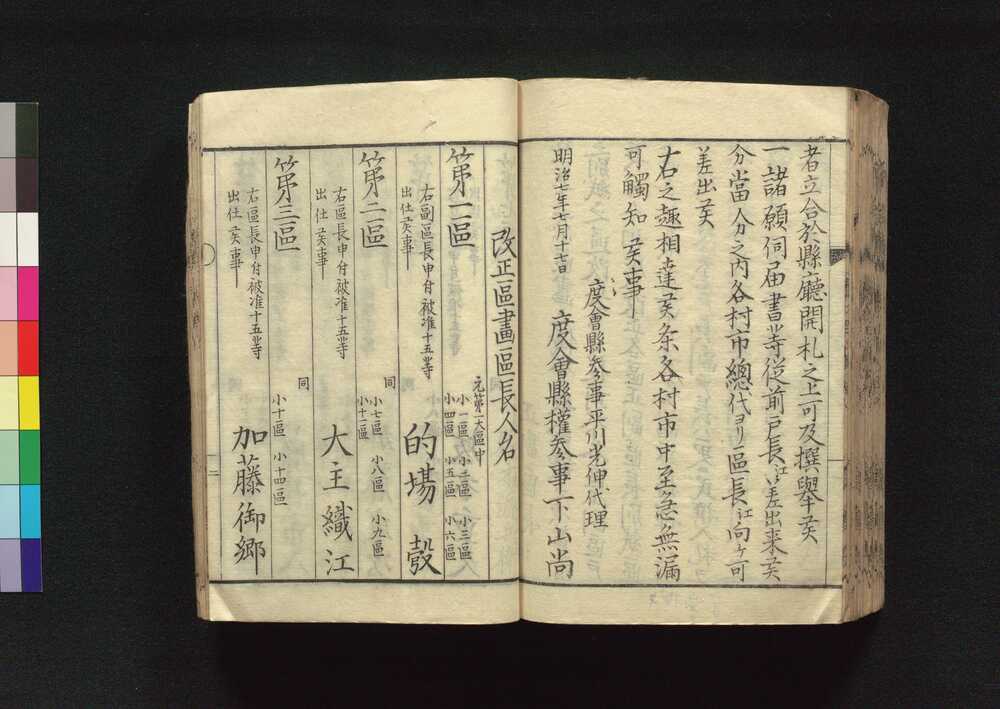 者立合於縣廳開札之上可及撰擧矦
一諸願伺届書等従前戸長江差出来矦
分當分之内各村市總代ヨリ區長江向ケ可
差出矦
右之趣相達矦条各村市中至急無漏
可觸知矦事
明治七年七月十七日
度會縣参事平川光伸代理
度會縣權参事下山尚
改正區畫區長人名
元第一大區中
第一區
小一區 小二區 小三區
小四區 小五區 小六區
右副區長申付被准十五等
出仕矦事
的場 彀
同
第二區
小七區 小八區 小九區
小十二區
右區長申付被准十五等
出仕矦事
大主織江
同
第三區
小十區 小十四區
右區長申付被准十五等
出仕矦事
加藤御郷
二